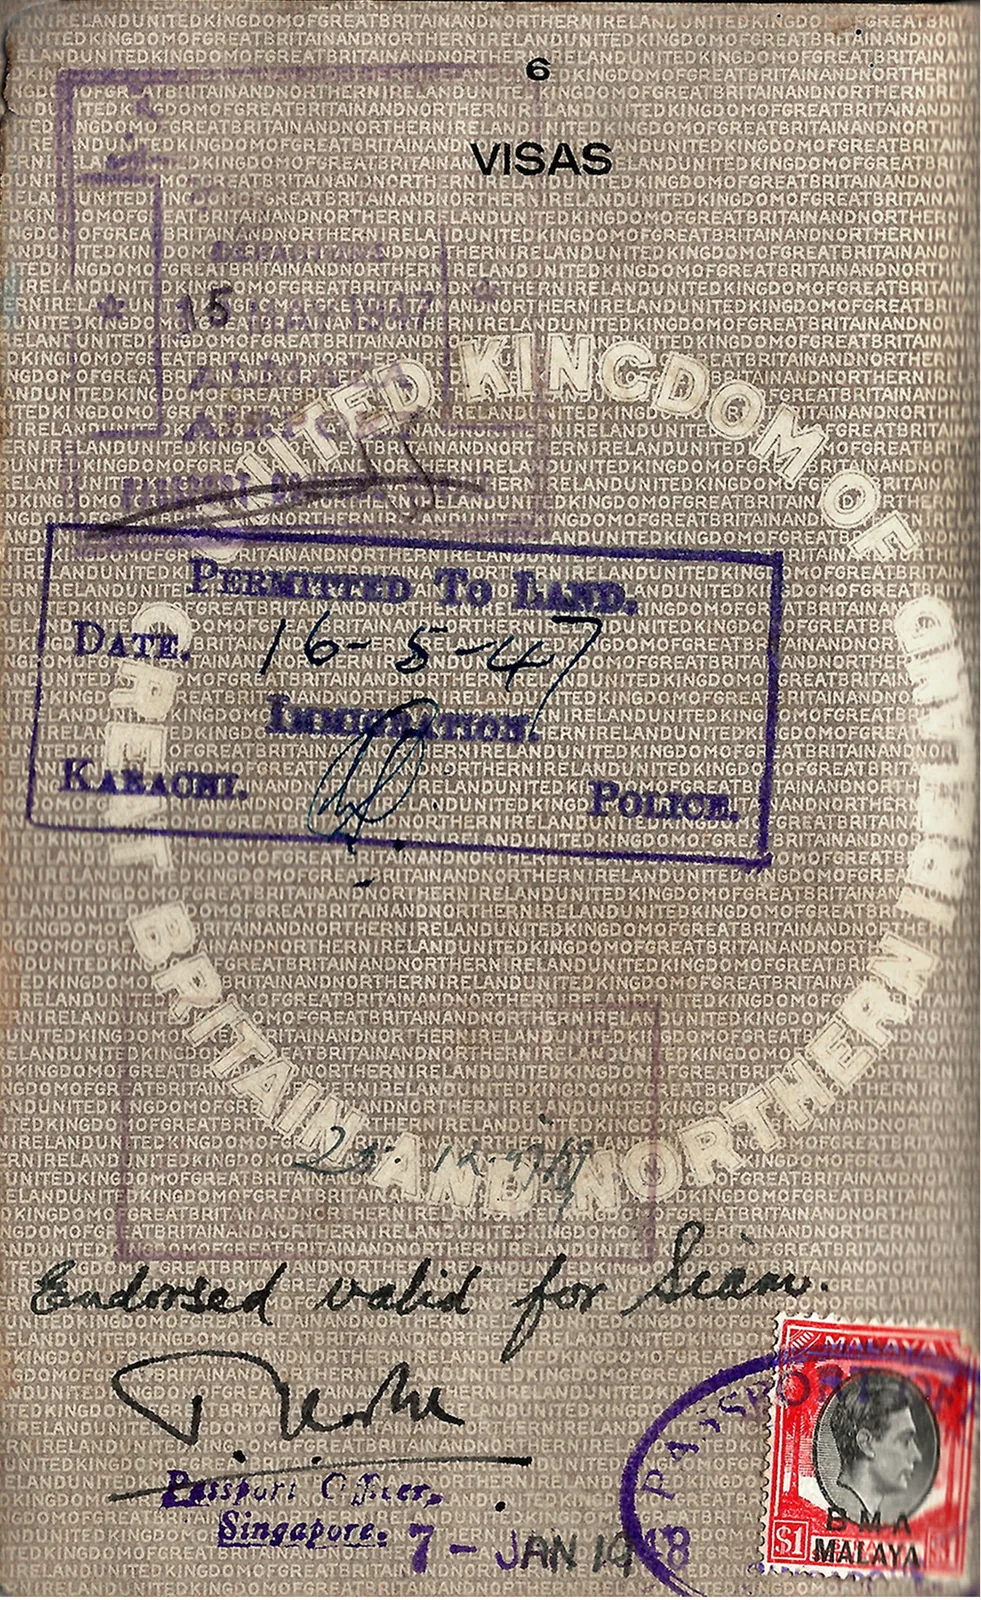 6
VISAS
15 1947
AIRPORT
PERMITTED TO LAND.
DATE. 16-5-47
IMMIGRATION.
KARACHI. POLICE.
UNITED KINGDOM OF GREAT BRITAIN AND NORTHERN IRELAND
Endorsed valid for Siam.
Passport Officer,
Singapore. 7 - JAN 1948
PASSPORT
MALAYA
BMA
$1 MALAYA